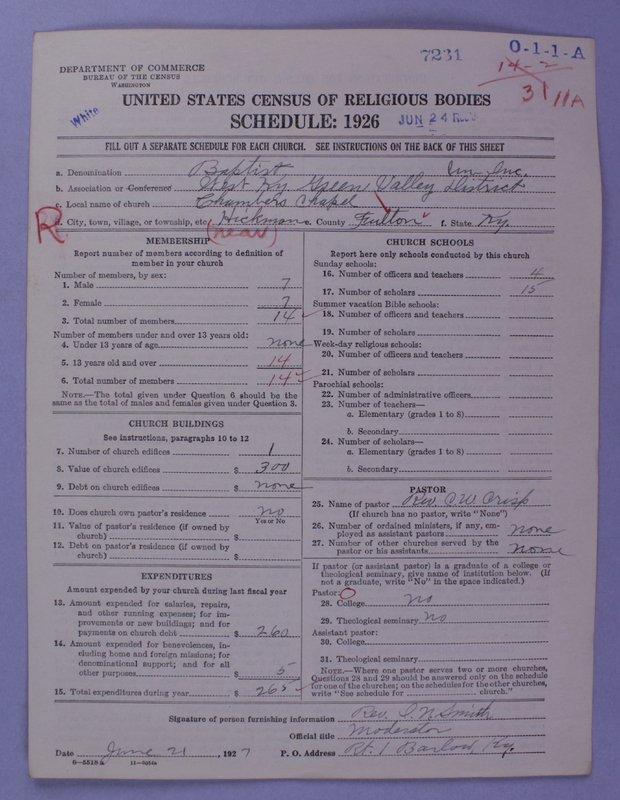 7231
O-1-1-A
14-2
31 11A
DEPARTMENT OF COMMERCE
BUREAU OF THE CENSUS
WASHINGTON
White
UNITED STATES CENSUS OF RELIGIOUS BODIES
SCHEDULE: 1926
JUN 24
FILL OUT A SEPARATE SCHEDULE FOR EACH CHURCH. SEE INSTRUCTIONS ON THE BACK OF THIS SHEET
a. Denomination Baptist
b. Association or Conference West Ky Green Valley District
c. Local name of church Chambers Chapel
R d. City, town, village, or township, etc. Hickman e. County Fulton f. State Ky.
(near)
MEMBERSHIP
Report number of members according to definition of
member in your church
Number of members, by sex:
1. Male 7
2. Female 7
3. Total number of members 14
Number of members under and over 13 years old:
4. Under 13 years of age none
5. 13 years old and over 14
6. Total number of members 14
NOTE.—The total given under Question 6 should be the
same as the total of males and females given under Question 3.
CHURCH BUILDINGS
See instructions, paragraphs 10 to 12
7. Number of church edifices 1
8. Value of church edifices $ 300
9. Debt on church edifices $ none
10. Does church own pastor's residence no
Yes or No
11. Value of pastor's residence (if owned by
church) $
12. Debt on pastor's residence (if owned by
church) $
EXPENDITURES
Amount expended by your church during last fiscal year
13. Amount expended for salaries, repairs,
and other running expenses; for im-
provements or new buildings; and for
payments on church debt $ 260
14. Amount expended for benevolences, in-
cluding home and foreign missions; for
denominational support; and for all
other purposes $ 5
15. Total expenditures during year $ 265
CHURCH SCHOOLS
Report here only schools conducted by this church
Sunday schools:
16. Number of officers and teachers 4
17. Number of scholars 15
Summer vacation Bible schools:
18. Number of officers and teachers
19. Number of scholars
Week-day religious schools:
20. Number of officers and teachers
21. Number of scholars
Parochial schools:
22. Number of administrative officers
23. Number of teachers—
a. Elementary (grades 1 to 8)
b. Secondary
24. Number of scholars—
a. Elementary (grades 1 to 8)
b. Secondary
PASTOR
25. Name of pastor Rev. C W Crisp
(If church has no pastor, write "None")
26. Number of ordained ministers, if any, em-
ployed as assistant pastors none
27. Number of other churches served by the
pastor or his assistants none
If pastor (or assistant pastor) is a graduate of a college or
theological seminary, give name of institution below. (If
not a graduate, write "No" in the space indicated.)
Pastor:
28. College no
29. Theological seminary no
Assistant pastor:
30. College
31. Theological seminary
NOTE.—Where one pastor serves two or more churches,
Questions 28 and 29 should be answered only on the schedule
for one of the churches; on the schedules for the other churches,
write "See schedule for church."
Signature of person furnishing information Rev. Smith
Official title Moderator
Date June 21, 1927 P. O. Address Rt. 1 Barlow, Ky.